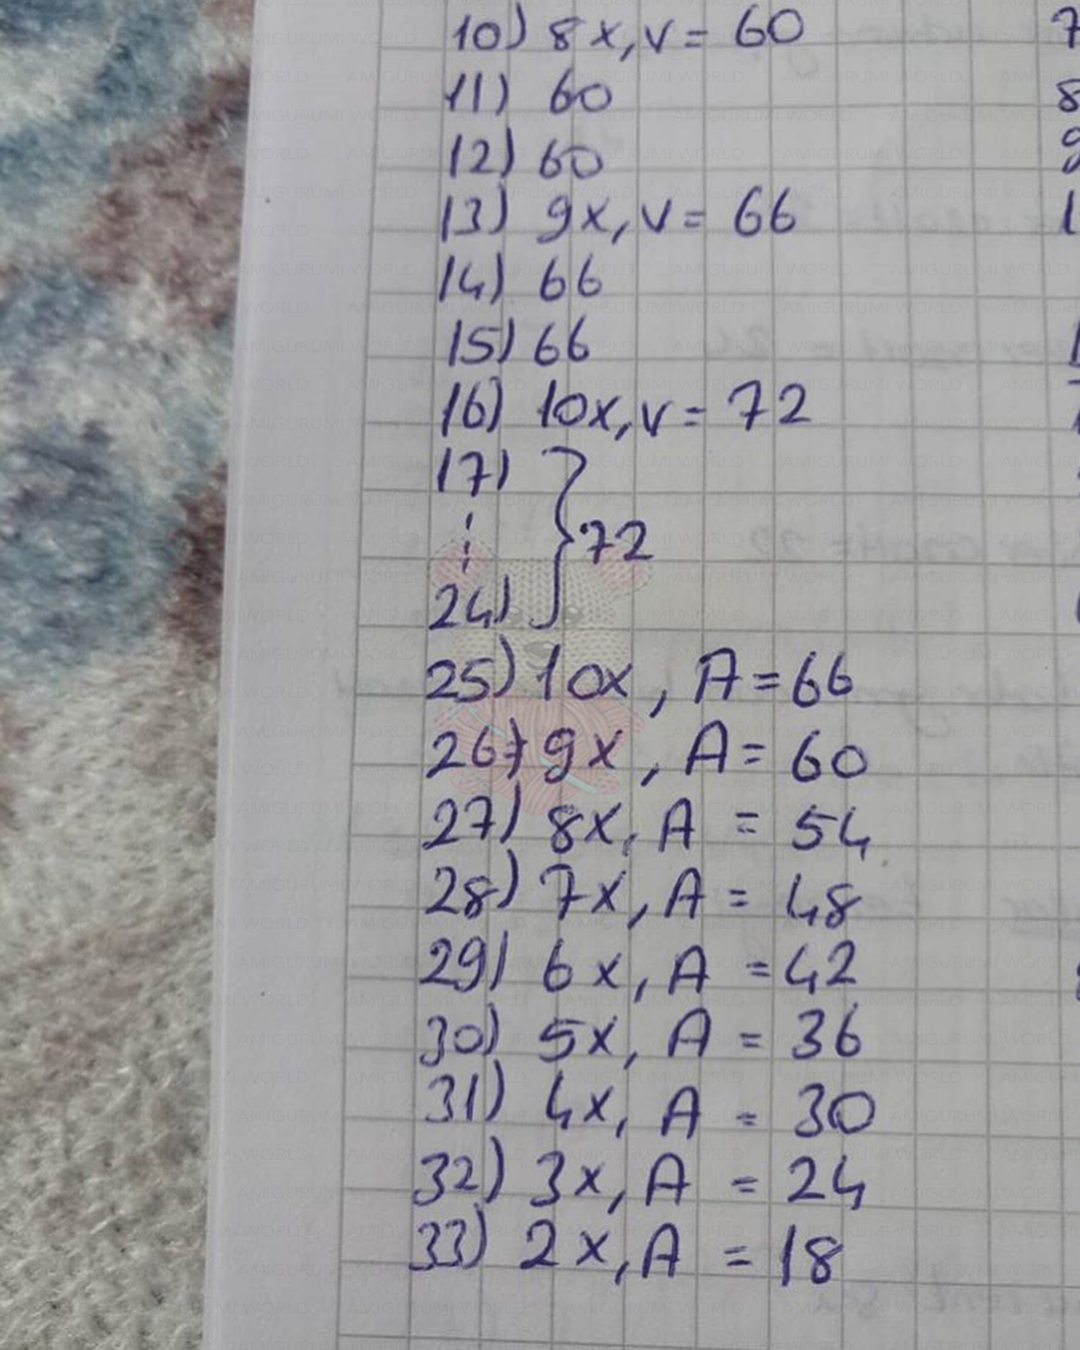 10) 8x, v = 60
11) 60
12) 60
13) 9x, v = 66
14) 66
15) 66
16) 10x, v = 72
17)
⋮ } 72
24)
25) 10x, A = 66
26) 9x, A = 60
27) 8x, A = 54
28) 7x, A = 48
29) 6x, A = 42
30) 5x, A = 36
31) 4x, A = 30
32) 3x, A = 24
33) 2x, A = 18
AMIGURUMI WORLD